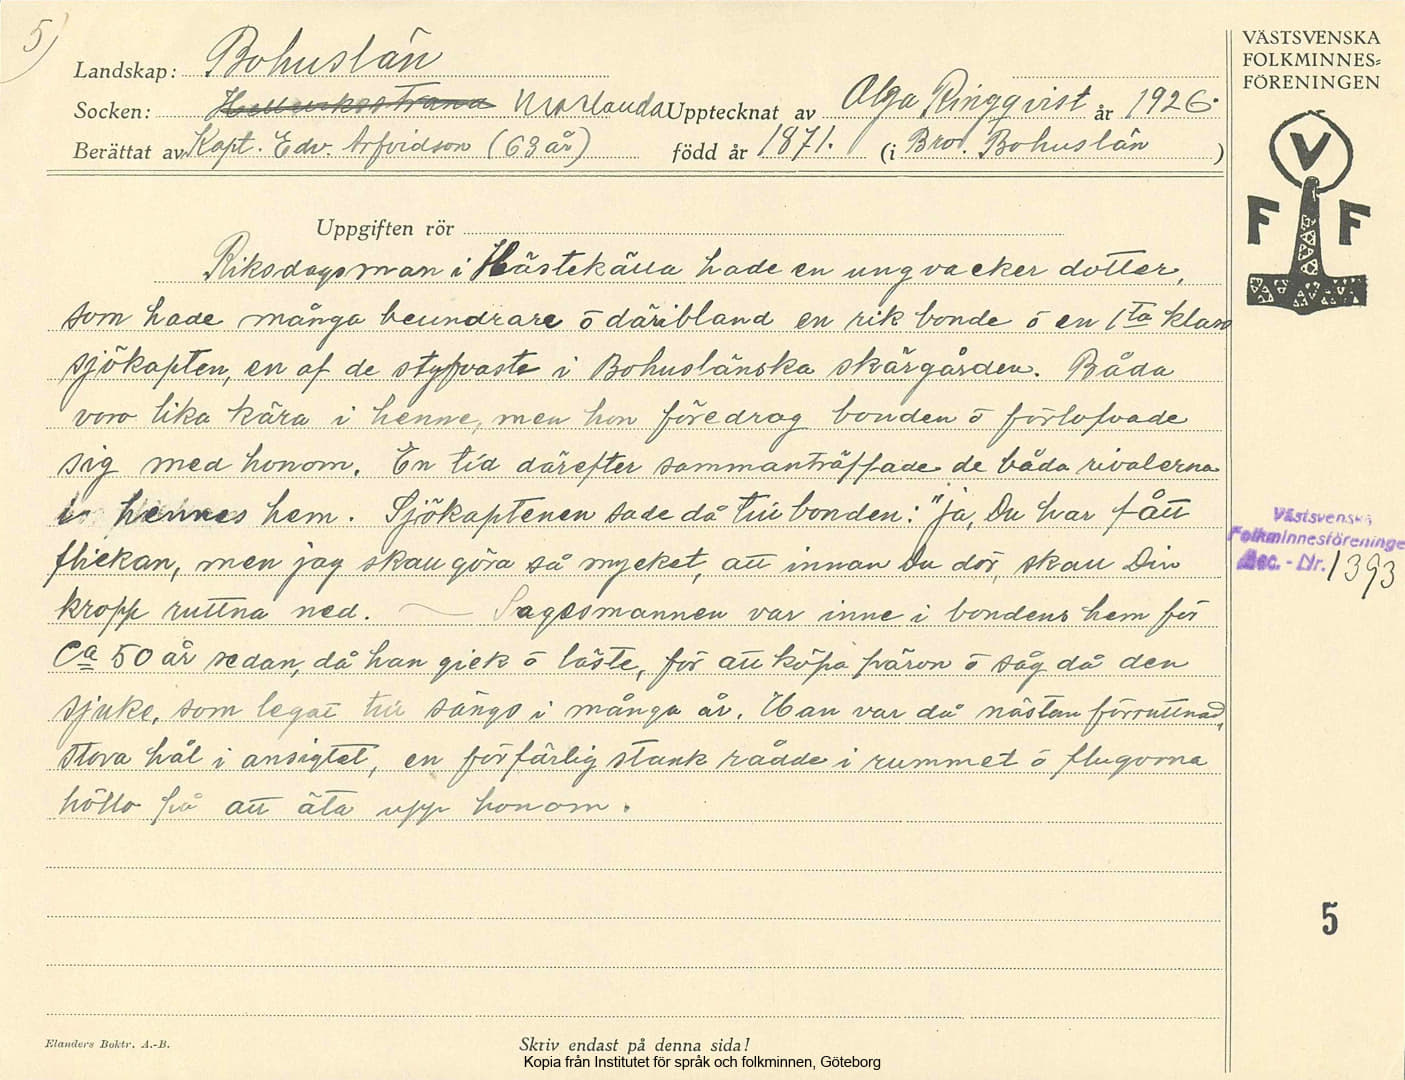 5)
Landskap: Bohuslän
Socken: Morlanda Upptecknat av Olga Ringqvist år 1926.
Berättat av Kapt. Edv. Arfvidson (63 år) född år 1871. (i Bro. Bohuslän )
Uppgiften rör
Riksdagsman i Hästekälla hade en ung vacker dotter,
som hade många beundrare ō däribland en rik bonde ō en 1ta klass
sjökapten, en af de styfvaste i Bohuslänska skärgården. Båda
voro lika kära i henne, men hon föredrog bonden ō förlofvade
sig med honom. En tid därefter sammanträffade de båda rivalerna
i hennes hem. Sjökaptenen sade då till bonden: "ja, Du har fått
flickan, men jag skall göra så mycket, att innan Du dör, skall Din
kropp ruttna ned. — Sagesmannen var inne i bondens hem för
Ca 50 år sedan, då han gick ō läste, för att köpa päron ō såg då den
sjuke, som legat till sängs i många år. Han var då nästan förruttnad,
stora hål i ansigtet, en förfärlig stank rådde i rummet ō flugorna
höllo på att äta upp honom.
Elanders Boktr. A.-B.
Skriv endast på denna sida!
Kopia från Institutet för språk och folkminnen, Göteborg
VÄSTSVENSKA
FOLKMINNES=
FÖRENINGEN
V
F F
Västsvenska
Folkminnesföreningen
Acc. - Nr. 1393
5